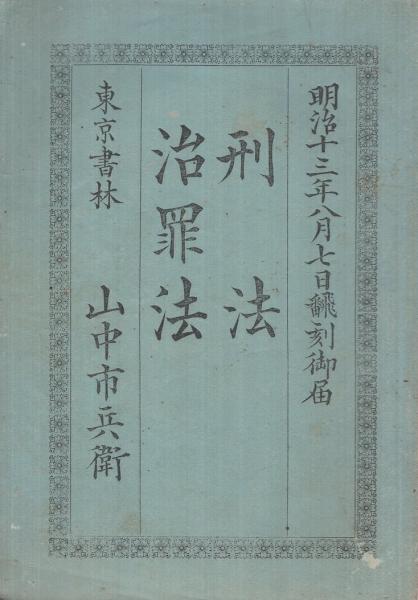 明治十三年八月七日飜刻御届
刑法
治罪法
東京書林 山中市兵衛